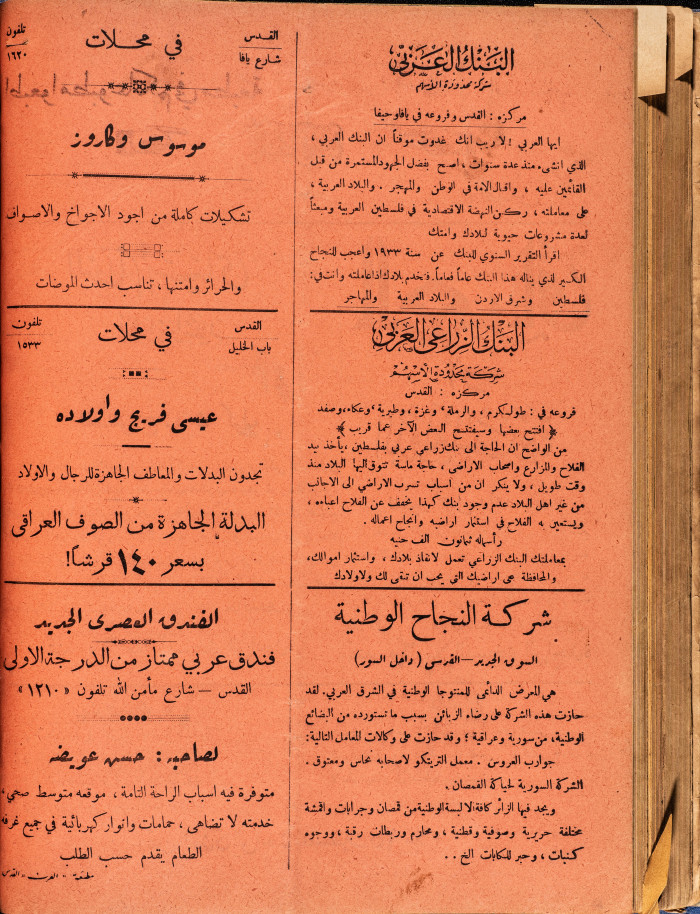 البنك العربي
شركة محدودة الاسهم
مركزه : القدس وفروعه في يافا وحيفا
ايها العربي ! لا ريب انك غدوت موقناً ان البنك العربي ،
الذي انشىء منذ عدة سنوات ، اصبح بفضل الجهود المستمرة من قبل
القائمين عليه ، واقبال الامة في الوطن والمهجر . والبلاد العربية ،
على معاملته ، ركن النهضة الاقتصادية في فلسطين العربية ومبعثاً
لعدة مشروعات حيوية لبلادك وامتك
اقرأ التقرير السنوي للبنك عن سنة ١٩٣٣ واعجب للنجاح
الكبير الذي يناله هذا البنك عاماً فعاماً. فتخدم بلادك اذا عاملته وانت في :
فلسطين وشرق الاردن والبلاد العربية والمهاجر
البنك الزراعي العربي
شركة محدودة الاسهم
مركزه : القدس
فروعه في : طولكرم ، والرملة ، وغزة ، وطبرية ، وعكاء ، وصفد
﴿ افتتح بعضها وسيفتتح البعض الآخر عما قريب ﴾
من الواضح ان الحاجة الى بنك زراعي عربي بفلسطين ، يأخذ بيد
الفلاح والمزارع واصحاب الاراضي ، حاجة ماسة تتوق اليها البلاد منذ
وقت طويل ، ولا ينكر ان من اسباب تسرب الاراضي الى الاجانب
من غير اهل البلاد عدم وجود بنك كهذا يخفف عن الفلاح اعباءه ،
ويستعين به الفلاح في استثمار اراضيه وانجاح اعماله .
رأسماله ثمانون الف جنيه
بمعاملتك البنك الزراعي تعمل لانقاذ بلادك ، واستثمار اموالك ،
والمحافظة على اراضيك التي يجب ان تبقى لك ولاولادك
شركة النجاح الوطنية
السوق الجديد – القدس ( داخل السور )
هي المعرض الدائمي للمنتوجا الوطنية في الشرق العربي. لقد
حازت هذه الشركة على رضاء الزبائن بسبب ما تستورده من البضائع
الوطنية ، من سورية وعراقية ؛ وقد حازت على وكالات المعامل التالية :
جوارب العروس . معمل التريتكو لاصحابه نحاس ومعتوق .
الشركة السورية لحياكة القمصان .
ويجد فيها الزائر كافة الالبسة الوطنية من قمصان وجرابات واقمشة
مختلفة حريرية وصوفية وقطنية ، ومحارم وربطات رقبة ، ووجوه
كنبات ، وحبر للكتابات الخ . .
القدس
شارع يافا
في محلات
تلفون
١٦٢٠
موسوس وكاروز
تشكيلات كاملة من اجود الاجواخ والاصواف
والحرائر وامتنها ، تناسب احدث الموضات
القدس
باب الخليل
في محلات
تلفون
١٥٣٣
عيسى فريج واولاده
تجدون البدلات والمعاطف الجاهزة للرجال والاولاد
البدلة الجاهزة من الصوف العراقي
بسعر ١٤٠ قرشاً !
الفندق العصري الجديد
فندق عربي ممتاز من الدرجة الاولى
القدس – شارع مأمن الله تلفون « ١٢١٠ »
لصاحبه : حسن عويضه
متوفرة فيه اسباب الراحة التامة ، موقعه متوسط صحي ،
خدمته لا تضاهى ، حمامات وانوار كهربائية في جميع غرفه
الطعام يقدم حسب الطلب
مطبعة « العرب » القدس